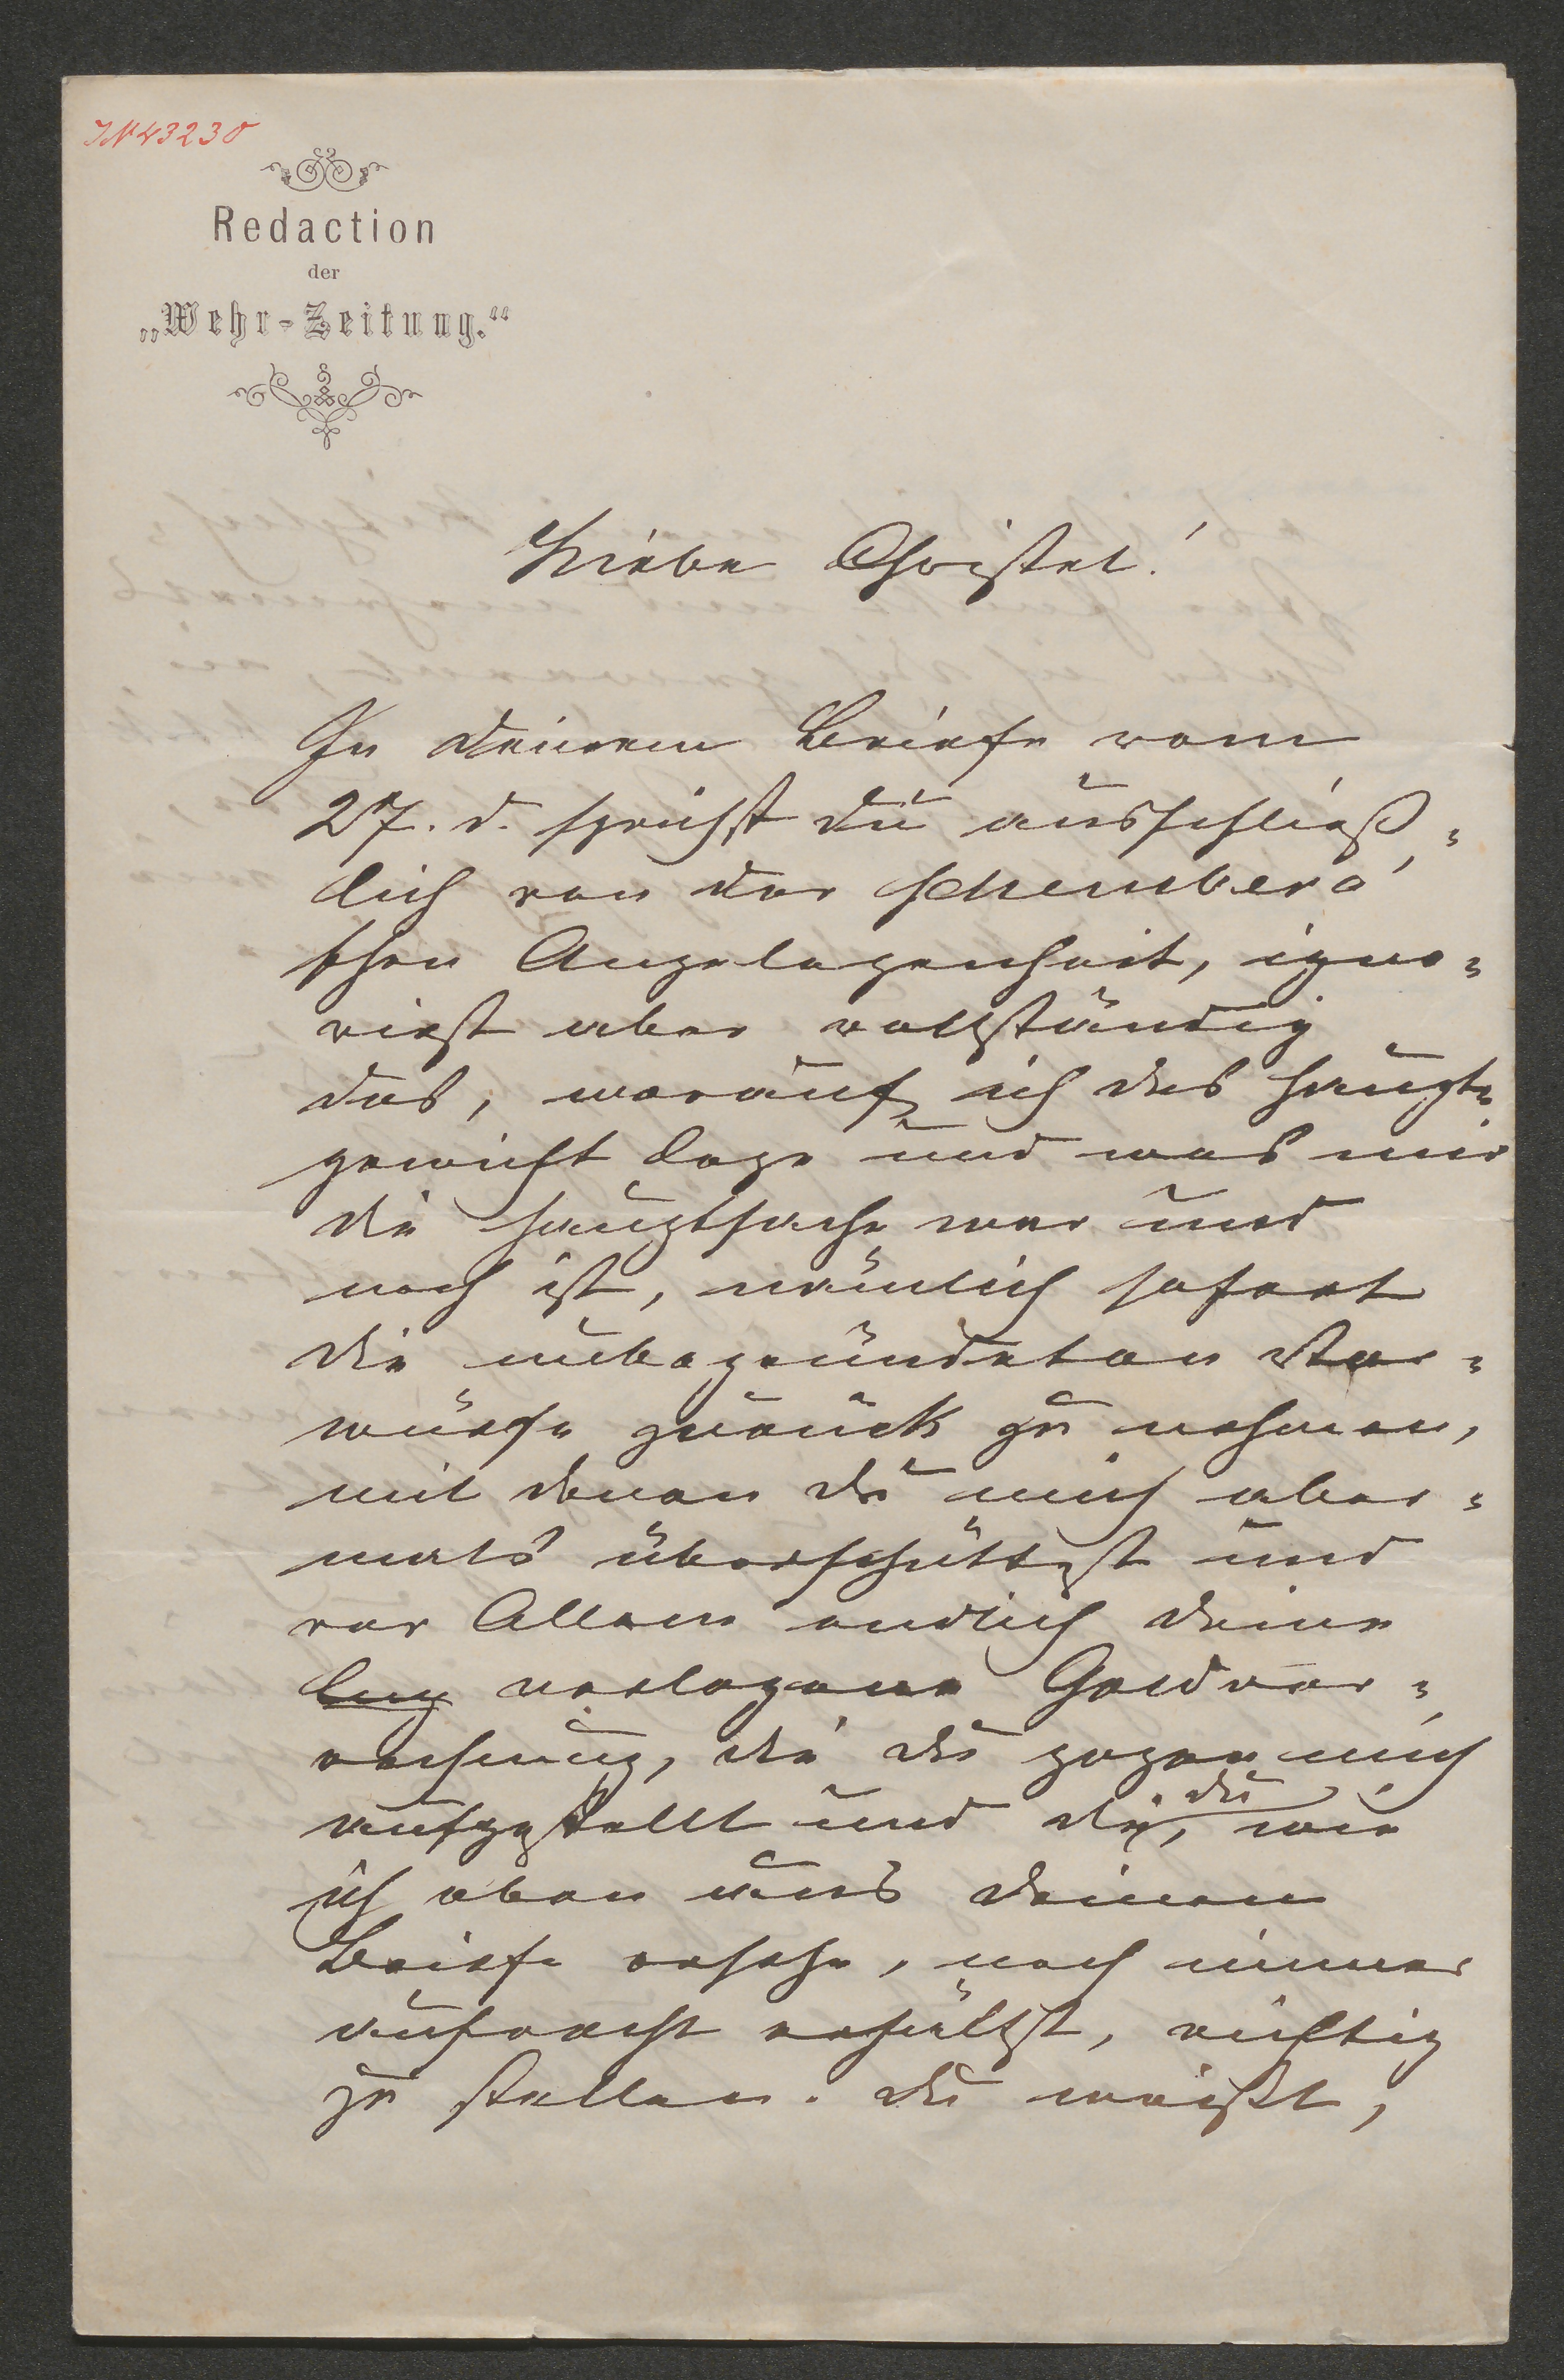 IN 43230
Redaction
der
„Wehr-Zeitung."
Liebe Christel!
In Deinem Briefe vom
27. d. sprichst Du ausschließ-
lich von der Schembera'
schen Angelegenheit, igno-
rirst aber vollständig
das, worauf ich das Haupt-
gewicht lege und was mir
die Hauptsache war und
noch ist, nämlich sofort
die unbegründeten Vor-
würfe zurück zu nehmen,
mit denen Du mich aber-
mals überschüttest und
vor Allem endlich Deine
verlogene Geldver-
rechnung, die Du gegen mich
aufgestellt und die, Du wie
ich eben aus Deinem
Briefe ersehe, noch immer
aufrecht erhältst, richtig
zu stellen. Du weißt,